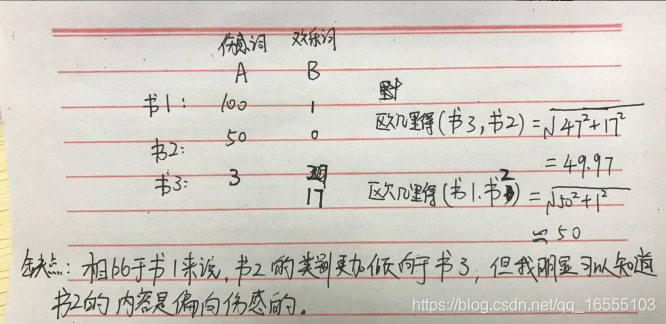 伤感词 欢乐词
A B
书1: 100 1
欧几里得(书3,书2) = √47²+17²
书2: 50 0
= 49.97
书3: 3 17
欧几里得(书1.书2) = √50²+1²
≈ 50
缺点: 相比于书1来说,书2的类别更加倾向于书3,但我明显可以知道
书2的内容是偏向伤感的。
https://blog.csdn.net/qq_16555103